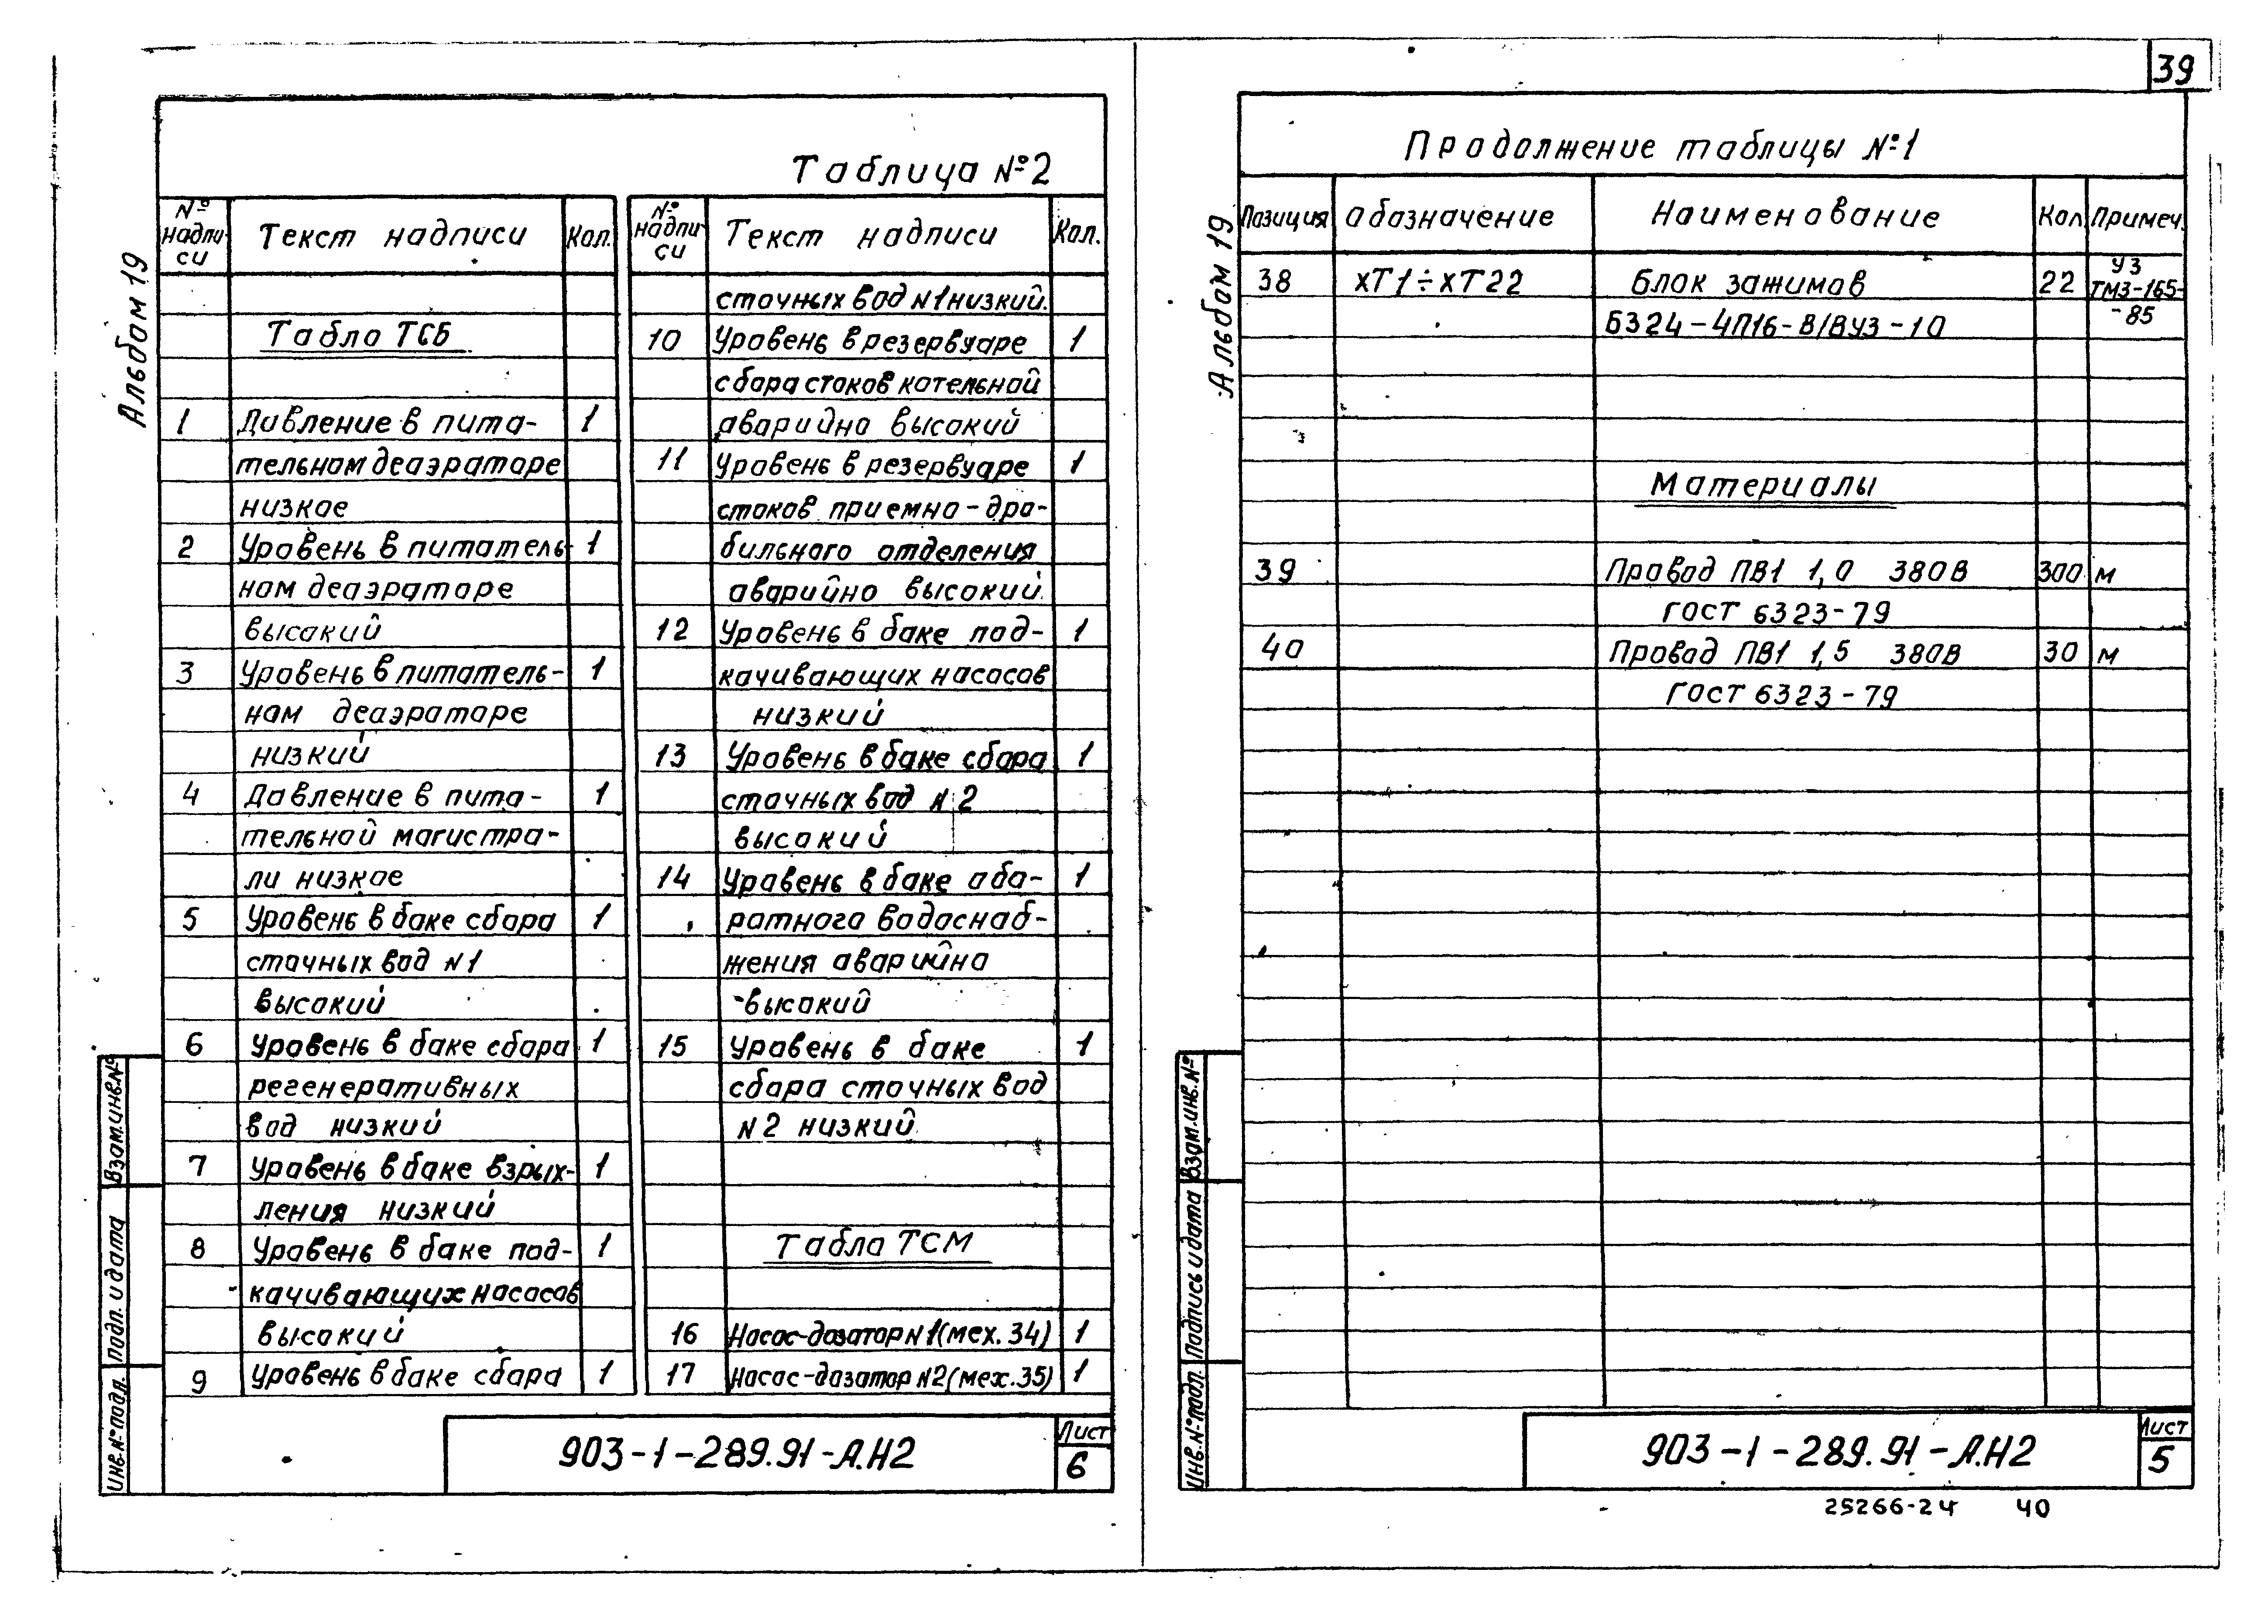 39
Таблица №2
№ надпи-си Текст надписи Кол.
Табло ТСБ
1 Давление в пита- 1
тельном деаэраторе
низкое
2 Уровень в питатель- 1
ном деаэраторе
высокий
3 Уровень в питатель- 1
ном деаэраторе
низкий
4 Давление в пита- 1
тельной магистра-
ли низкое
5 Уровень в баке сбора 1
сточных вод N1
высокий
6 Уровень в баке сбора 1
регенеративных
вод низкий
7 Уровень в баке взрых- 1
ления низкий
8 Уровень в баке под- 1
качивающих насосов
высокий
9 Уровень в баке сбора 1
№ надпи-си Текст надписи Кол.
сточных вод N1 низкий.
10 Уровень в резервуаре 1
сбора стоков котельной
аварийно высокий
11 Уровень в резервуаре 1
стоков приемно-дро-
бильного отделения
аварийно высокий.
12 Уровень в баке под- 1
качивающих насосов
низкий
13 Уровень в баке сбора 1
сточных вод N2
высокий
14 Уровень в баке обо- 1
ротного водоснаб-
жения аварийно
высокий
15 Уровень в баке 1
сбора сточных вод
N2 низкий.
Табло ТСМ
16 Насос-дозатор N1 (мех. 34) 1
17 Насос-дозатор N2 (мех. 35) 1
903-1-289.91-А.Н2
Лист
6
Альбом 19
Взам.инв.№
Подп. и дата
Инв.№подл.
Продолжение таблицы №1
Позиция Обозначение Наименование Кол. Примеч.
38 ХТ1÷ХТ22 Блок зажимов 22 УЗ
ТМ3-165-
БЗ24-4П16-В/ВУ3-10 -85
Материалы
39 Провод ПВ1 1,0 380В 300 м
ГОСТ 6323-79
40 Провод ПВ1 1,5 380В 30 м
ГОСТ 6323-79
903-1-289.91-А.Н2
Лист
5
Альбом 19
Взам.инв.№
Подпись и дата
Инв.№подл.
25266-24 40